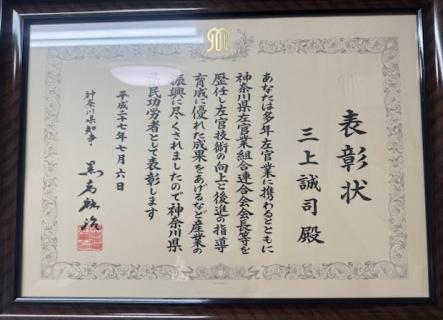 表彰状
三上誠司殿
あなたは多年左官業に携わるとともに
神奈川県左官業組合連合会会長等を
歴任し左官技術の向上と後進の指導
育成に優れた成果をあげるなど産業の
振興に尽くされましたので神奈川県
民功労者として表彰します
平成二十七年七月六日
神奈川県知事
黒岩祐治